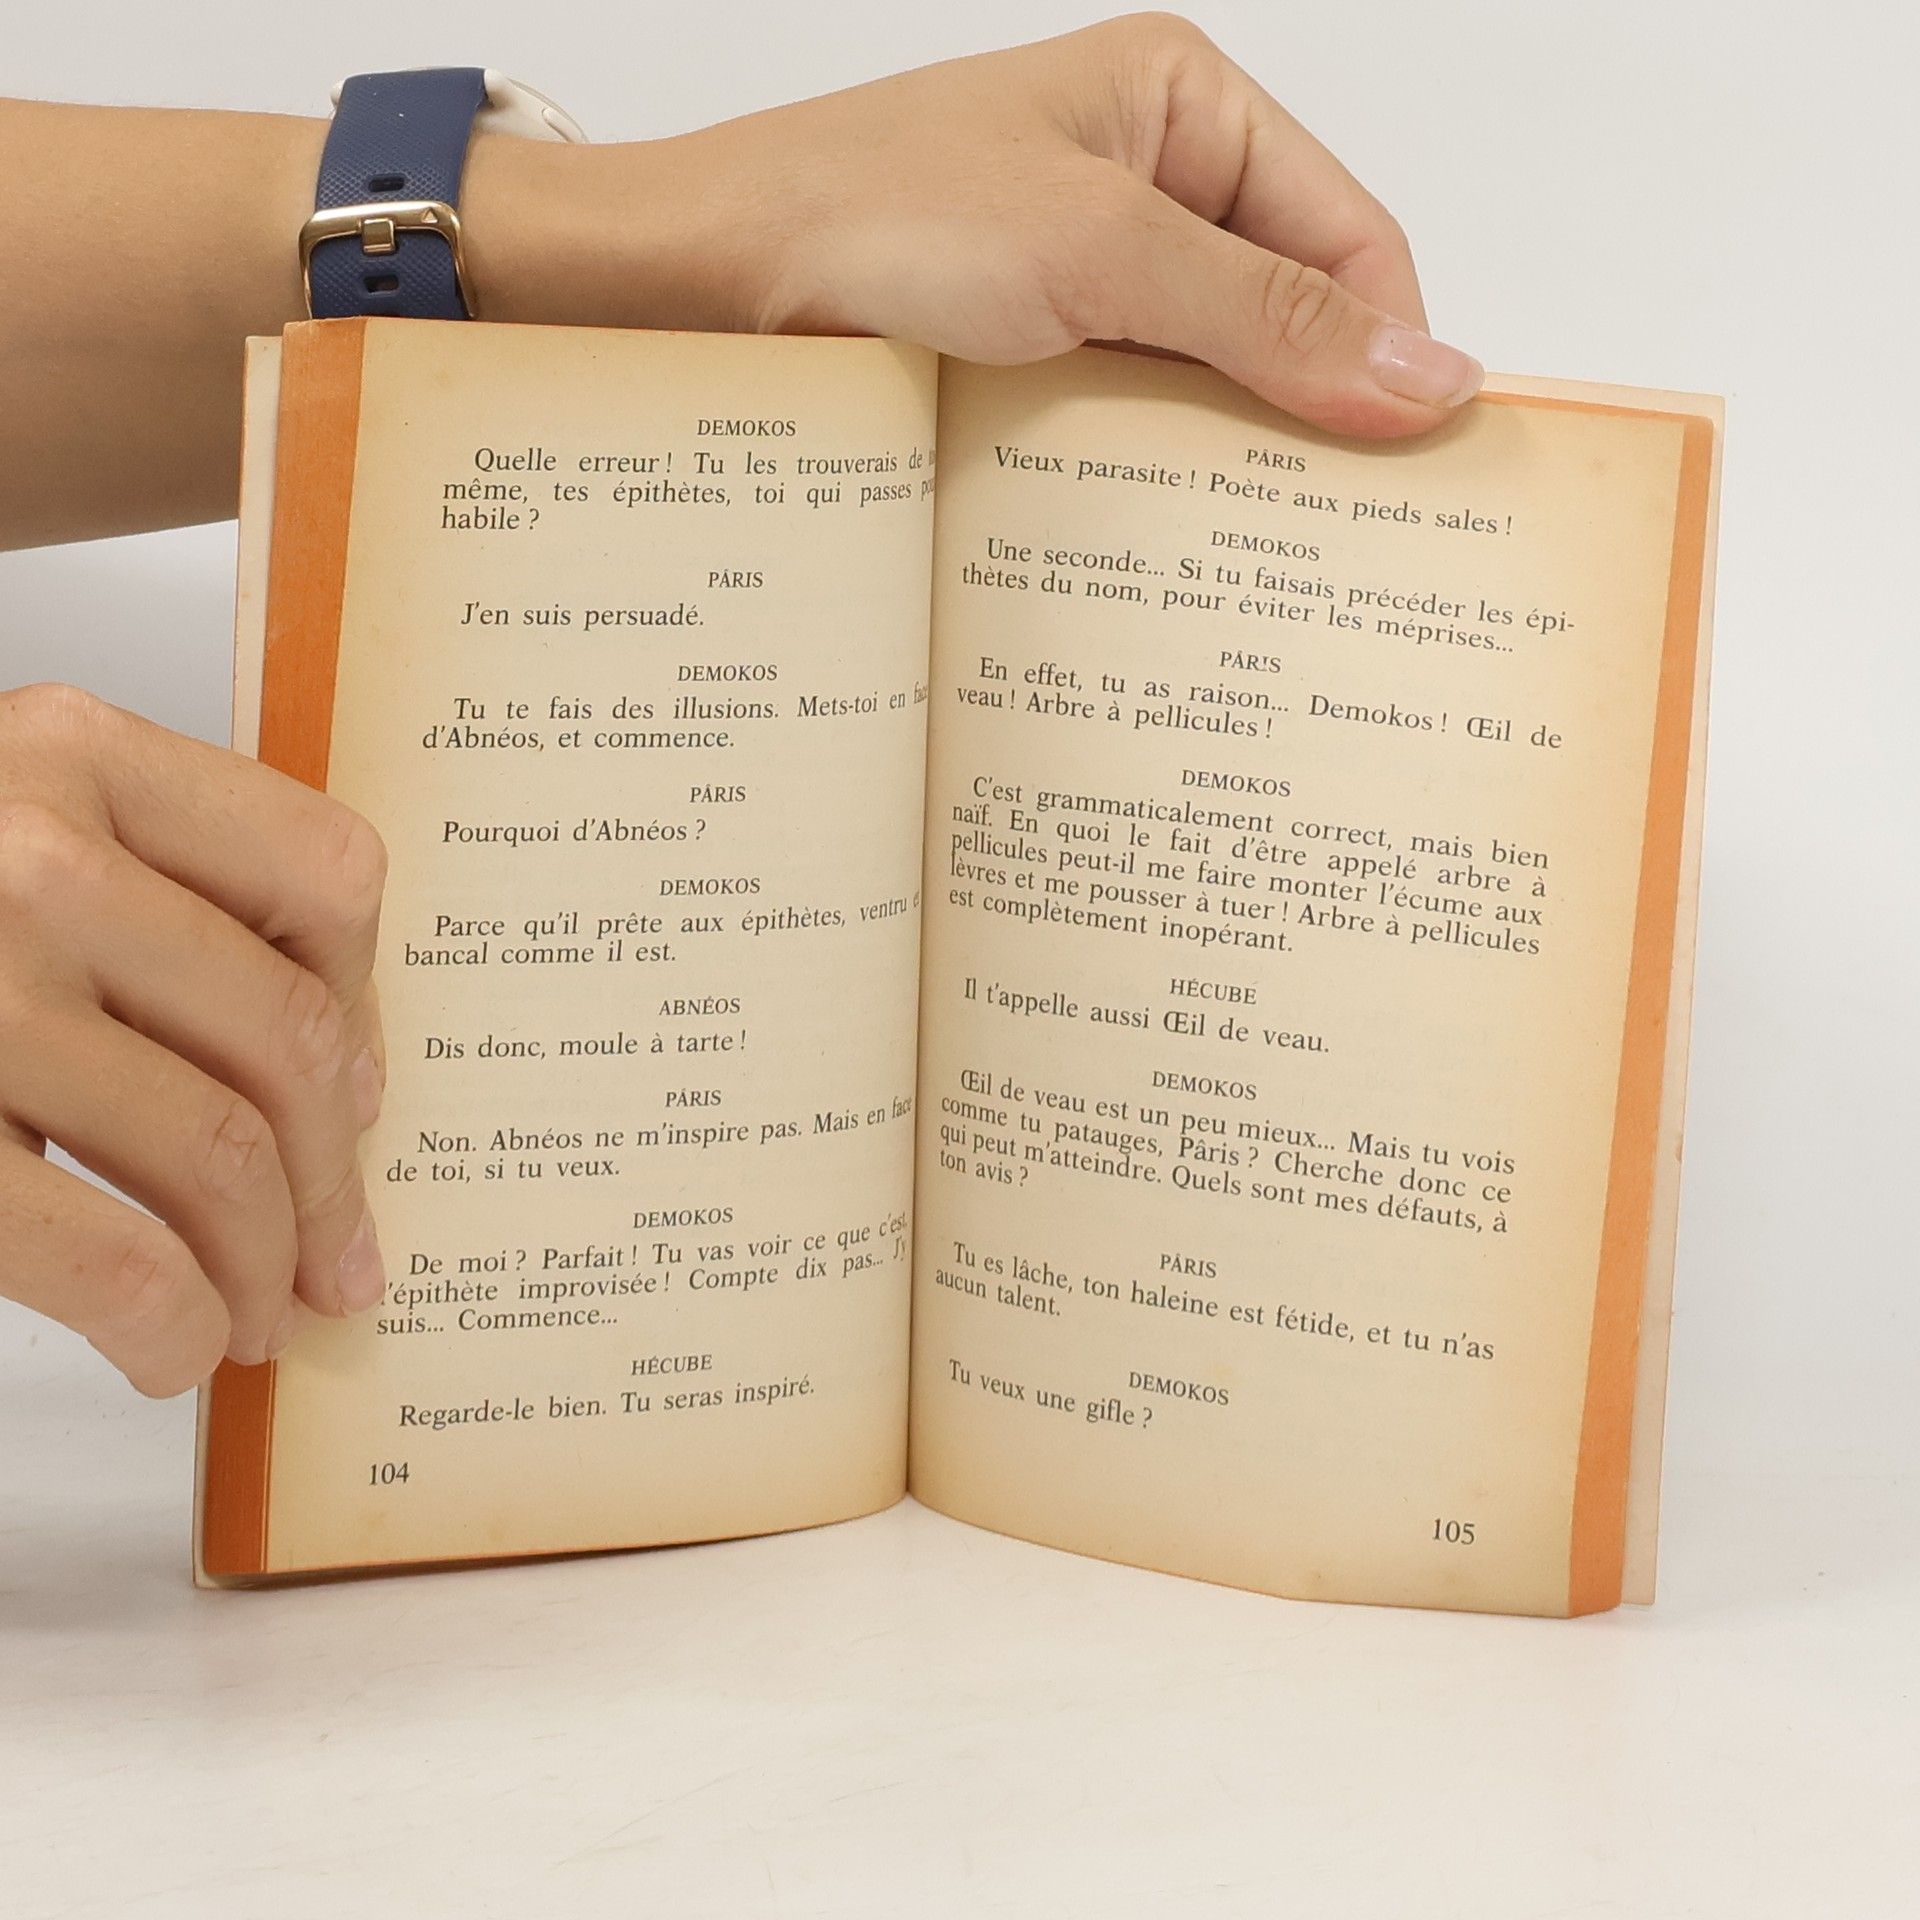 DEMOKOS
Quelle erreur ! Tu les trouverais de
même, tes épithètes, toi qui passes
habile ?
PÂRIS
J'en suis persuadé.
DEMOKOS
Tu te fais des illusions. Mets-toi en face
d'Abnéos, et commence.
PÂRIS
Pourquoi d'Abnéos ?
DEMOKOS
Parce qu'il prête aux épithètes, ventru et
bancal comme il est.
ABNÉOS
Dis donc, moule à tarte !
PÂRIS
Non. Abnéos ne m'inspire pas. Mais en face
de toi, si tu veux.
DEMOKOS
De moi ? Parfait ! Tu vas voir ce que c'est,
l'épithète improvisée ! Compte dix pas... J'y
suis... Commence...
HÉCUBE
Regarde-le bien. Tu seras inspiré.
104
PÂRIS
Vieux parasite ! Poète aux pieds sales !
DEMOKOS
Une seconde... Si tu faisais précéder les épi-
thètes du nom, pour éviter les méprises...
PÂRIS
En effet, tu as raison... Demokos ! Œil de
veau ! Arbre à pellicules !
DEMOKOS
C'est grammaticalement correct, mais bien
naïf. En quoi le fait d'être appelé arbre à
pellicules peut-il me faire monter l'écume aux
lèvres et me pousser à tuer ! Arbre à pellicules
est complètement inopérant.
HÉCUBE
Il t'appelle aussi Œil de veau.
DEMOKOS
Œil de veau est un peu mieux... Mais tu vois
comme tu patauges, Pâris ? Cherche donc ce
qui peut m'atteindre. Quels sont mes défauts, à
ton avis ?
PÂRIS
Tu es lâche, ton haleine est fétide, et tu n'as
aucun talent.
DEMOKOS
Tu veux une gifle ?
105